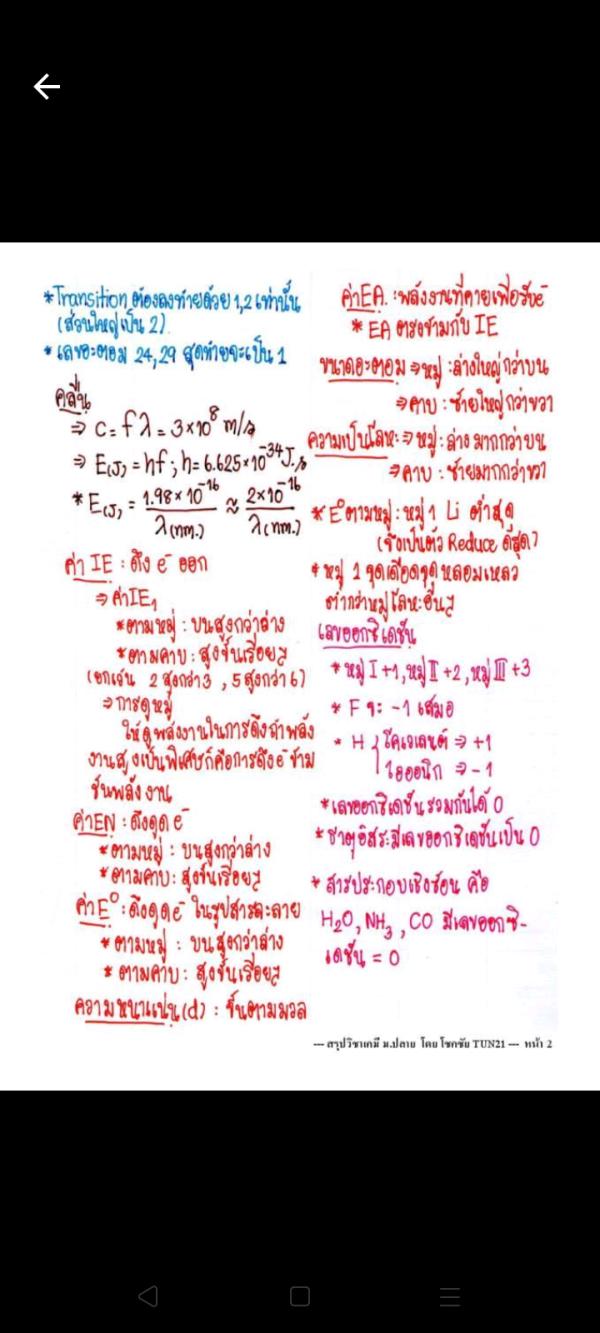 *Transition ต้องลงท้ายด้วย 1,2 เท่านั้น
(ส่วนใหญ่เป็น 2)
* เลขอะตอม 24, 29 สุดท้ายจะเป็น 1
คลื่น
⇒ C = fλ = 3×10⁸ m/s
⇒ E(J) = hf ; h = 6.625×10⁻³⁴ J.s
* E(J) = 1.98×10⁻¹⁶ / λ(nm.) ≈ 2×10⁻¹⁶ / λ(nm.)
ค่า IE : ดึง e⁻ ออก
⇒ ค่า IE₁
*ตามหมู่ : บนสูงกว่าล่าง
*ตามคาบ : สูงขึ้นเรื่อยๆ
(ยกเว้น 2 สูงกว่า 3 , 5 สูงกว่า 6)
⇒ การดูหมู่
ให้ดูพลังงานในการดึงถ้าพลัง
งานสูงเป็นพิเศษก็คือการดึง e⁻ ข้าม
ชั้นพลังงาน
ค่า EN : ดึงดูด e⁻
*ตามหมู่ : บนสูงกว่าล่าง
*ตามคาบ : สูงขึ้นเรื่อยๆ
ค่า E⁰ : ดึงดูด e⁻ ในรูปสารละลาย
*ตามหมู่ : บนสูงกว่าล่าง
* ตามคาบ : สูงขึ้นเรื่อยๆ
ความหนาแน่น (d) : ขึ้นตามมวล
ค่า EA. : พลังงานที่คายเพื่อรับ e⁻
* EA ตรงข้ามกับ IE
ขนาดอะตอม ⇒ หมู่ : ล่างใหญ่กว่าบน
⇒ คาบ : ซ้ายใหญ่กว่าขวา
ความเป็นโลหะ ⇒ หมู่ : ล่างมากกว่าบน
⇒ คาบ : ซ้ายมากกว่าขวา
* E⁰ ตามหมู่ : หมู่ 1 Li ต่ำสุด
(จึงเป็นตัว Reduce ดีสุด)
* หมู่ 1 จุดเดือดจุดหลอมเหลว
ต่ำกว่าหมู่โลหะอื่นๆ
เลขออกซิเดชัน
* หมู่ I +1, หมู่ II +2, หมู่ III +3
* F จะ -1 เสมอ
* H { โคเวเลนต์ ⇒ +1
ไอออนิก ⇒ -1
*เลขออกซิเดชันรวมกันได้ 0
*ธาตุอิสระมีเลขออกซิเดชันเป็น 0
* สารประกอบเชิงซ้อน คือ
H₂O, NH₃ , CO มีเลขออกซิ-
เดชัน = 0
--- สรุปวิชาเคมี ม.ปลาย โดย โชกชัย TUN21 --- หน้า 2